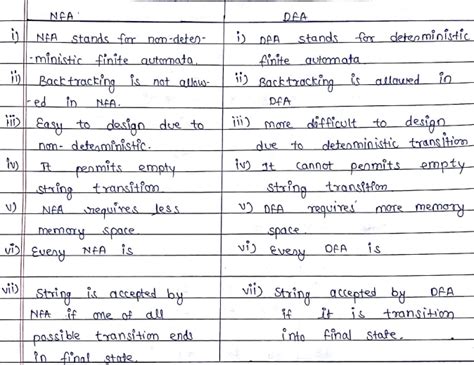 NFA DFA
i) NFA stands for non-deter- i) DFA stands for deterministic
-ministic finite automata. finite automata
ii) Backtracking is not allow- ii) Backtracking is allowed in
-ed in NFA. DFA
iii) Easy to design due to iii) more difficult to design
non-deterministic. due to deterministic transition
iv) It permits empty iv) It cannot permits empty
string transition string transition.
v) NFA requires less v) DFA requires more memory
memory space. space.
vi) Every NFA is vi) Every DFA is
vii) String is accepted by vii) String accepted by DFA
NFA if one of all if it is transition
possible transition ends into final state.
in final state.